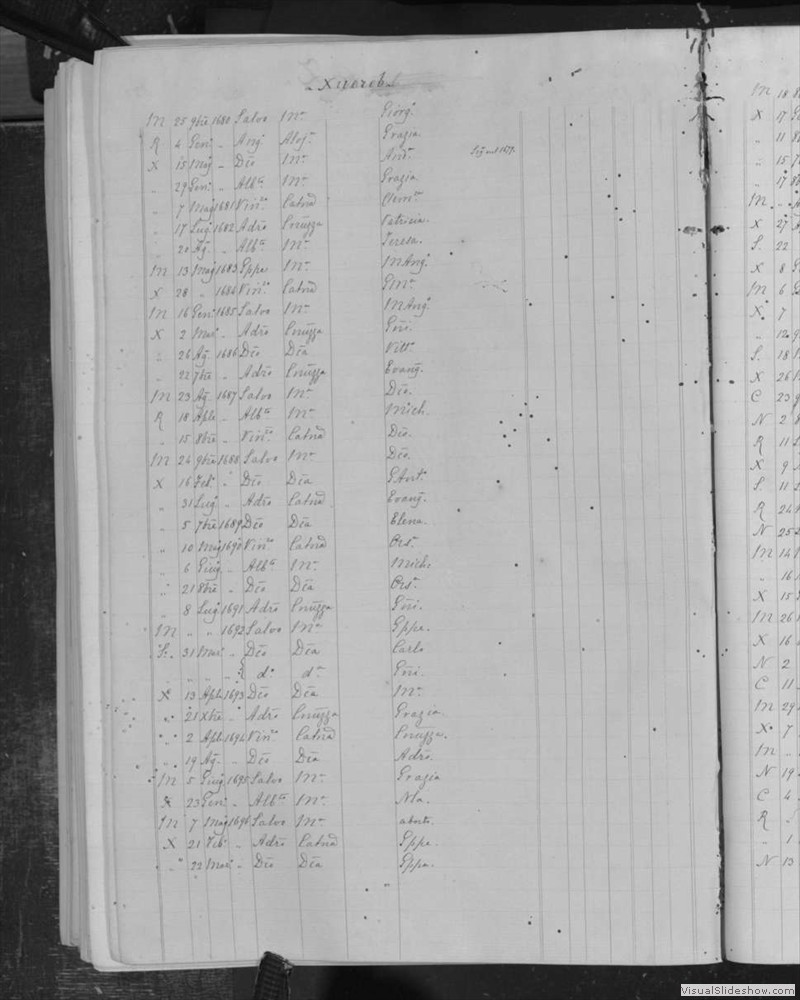 Xuereb
M 25 9bre 1680 Salvo Mª Giorgº
R 4 Genº „ Angº Alojª Grazia
X 15 Magº „ Dco Mª Andª
„ 29 Genº „ Albto Mª Grazia
„ 7 Magº 1681 Vinzo Catnª Clemª
„ 17 Lugº 1682 Adrº Cnuzza Patrizia.
„ 20 Agº „ Albto Mª Teresa.
M 13 Magº 1683 Gppe Mª MAngª
X 28 „ 1684 Vinzo Catnª GMª
M 16 Genº 1685 Salvo Mª MAngª
X 2 Marº „ Adrº Cnuzza Gni.
„ 26 Agº 1686 Dco Dca Vittª
„ 22 7bre „ Adrº Cnuzza Evangª
M 23 Agº 1687 Salvo Mª Dco.
R 18 Aple „ Albto Mª Mich.
„ 15 8bre „ Vinzo Catnª Dco.
M 24 9bre 1688 Salvo Mª Dco.
X 16 Febº „ Dco Dca GAntº
„ 31 Lugº „ Adrº Catnª Evangª
„ 5 7bre 1689 Dco Dca Elena.
„ 10 Magº 1690 Vinzo Catnª Orsª
„ 6 Giugº „ Albto Mª Mich.
„ 21 8bre „ Dco Dca Orsª
„ 8 Lugº 1691 Adrº Cnuzza Gni.
M „ „ 1692 Salvo Mª Gppe.
S. 31 Marº „ Dco Dca Carlo
„ „ „ „ dº dª Gni.
X 13 Aple 1693 Dco Dca Mª
„ 21 Xbre „ Adrº Cnuzza Grazia
„ 2 Aple 1694 Vinzo Catnª Cnuzza.
„ 19 Agº „ Dco Dca Adrº
M 5 Giugº 1695 Salvo Mª Grazia
X 23 Genº „ Albto Mª Nla.
M 7 Magº 1696 Salvo Mª
X 21 Febº „ Adrº Catnª Gppe.
„ 22 Marº „ Dco Dca Gppa.
M 18
X 17
„ 11
„ 15
„ 17
M „
X 27
S. 22
X 8
M 6
X 7
„ 12
S. 18
X 26
C 23
N 2
R 11
X 9
S. 11
R 24
N 25
M 14
„ 16
X 15
M 26
X 16
N 2
C 11
M 29
X 7
M „
N 19
C 4
R
„ 1
N 13
VisualSlideshow.com